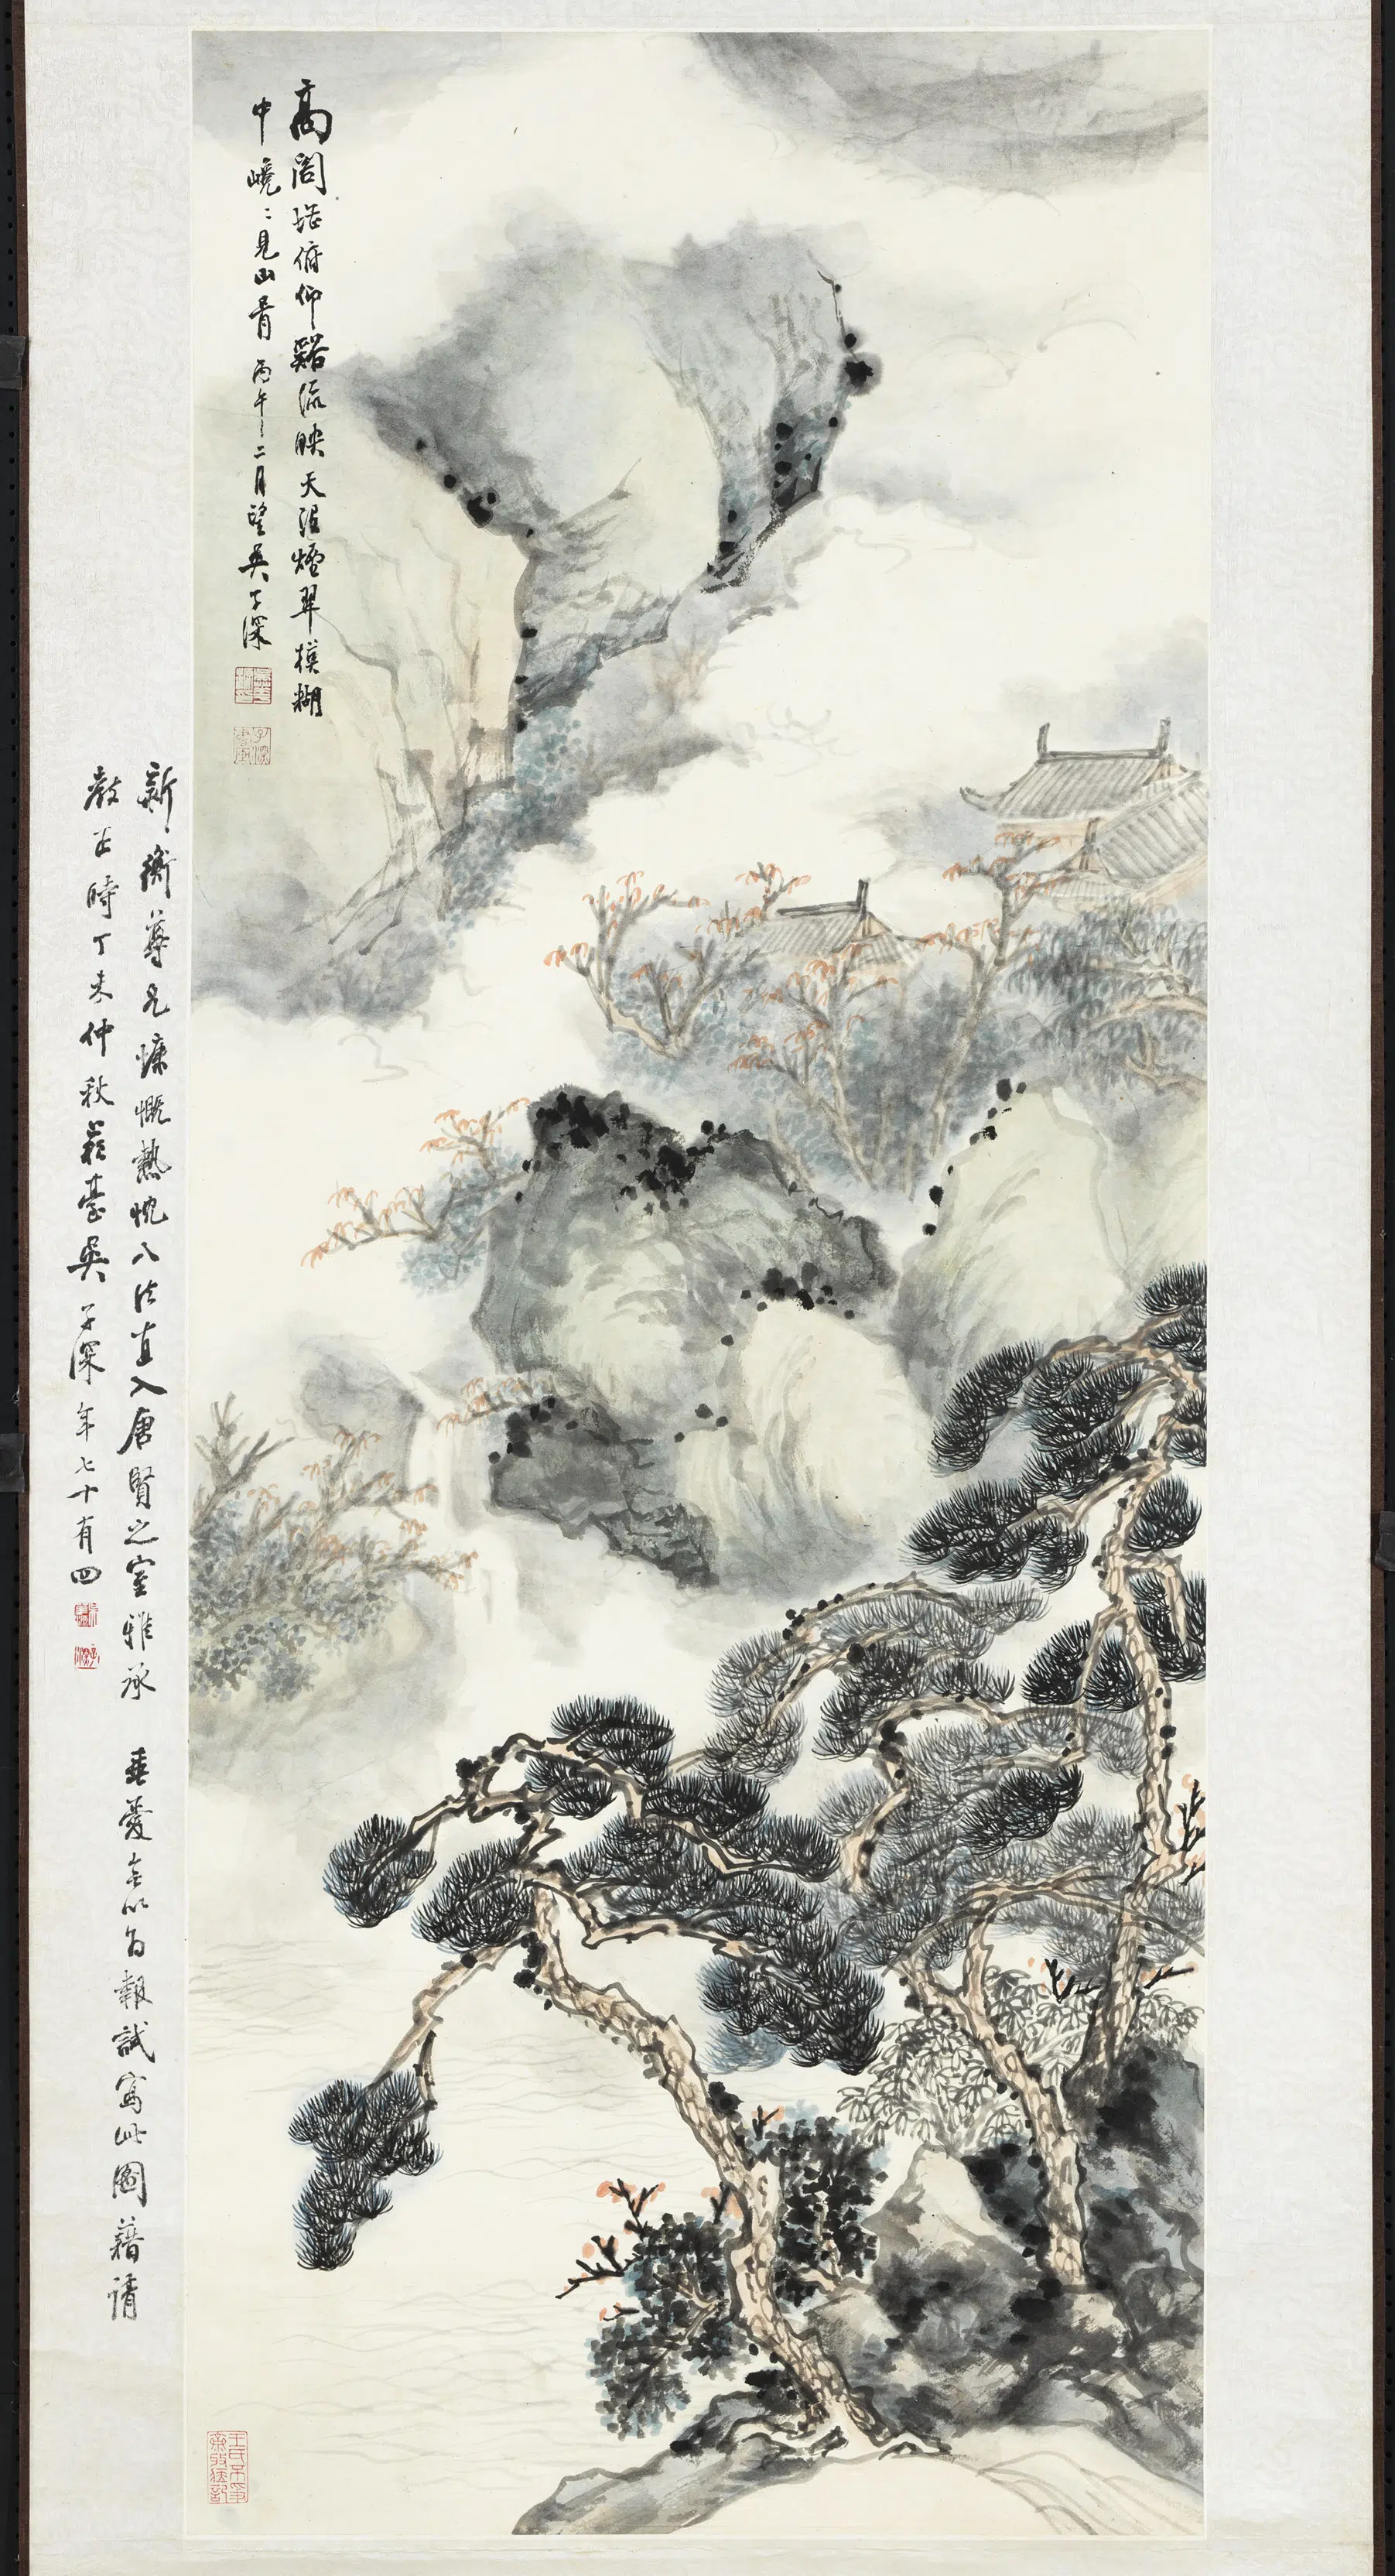 高閣堪俯仰谿流映天河煙翠模糊
中峣〻見山青丙午二月望吳子深
新衡尊兄慷慨熱忱八法直入唐賢之室雅承 垂愛無以為報試寫此圖藉請
教正時丁未仲秋吳子深年七十有四